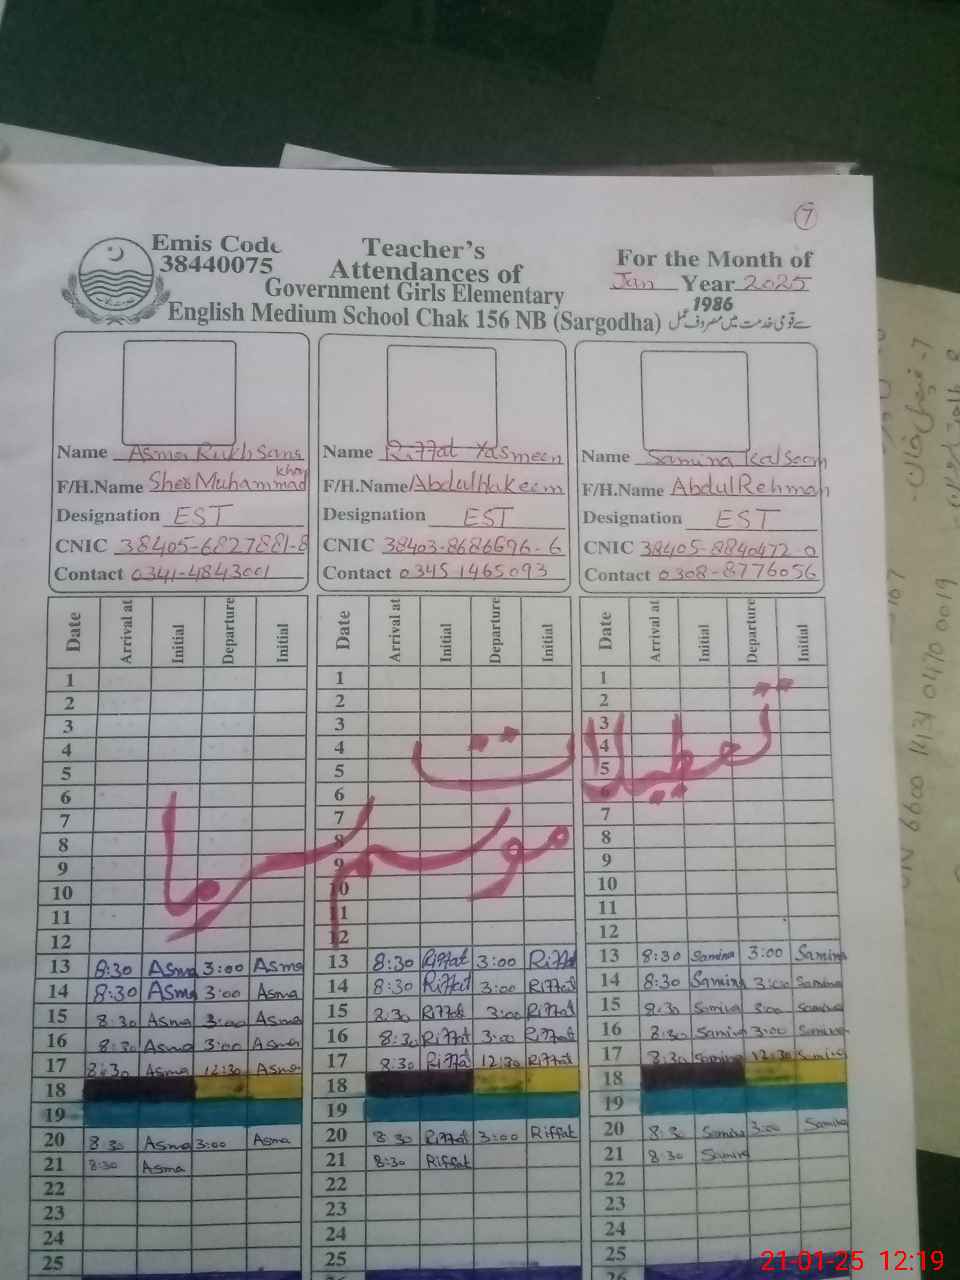 7
Emis Code
38440075
Teacher's
Attendances of
Government Girls Elementary
English Medium School Chak 156 NB (Sargodha)
For the Month of
Jan Year 2025
1986
سے قومی خدمت میں مصروف عمل
Name Asma Rukhsana
F/H.Name Sher Muhammad Khan
Designation EST
CNIC 38405-6827881-8
Contact 0341-4843001
Name Riffat Yasmeen
F/H.Name Abdul Hakeem
Designation EST
CNIC 38403-8686696-6
Contact 0345 1465093
Name Samina Kalsoom
F/H.Name Abdul Rehman
Designation EST
CNIC 38405-8840472-0
Contact 0308-8776056
Date Arrival at Initial Departure Initial Date Arrival at Initial Departure Initial Date Arrival at Initial Departure Initial
1 1 1
2 2 2
3 3 3
4 4 4
5 5 5
6 6 6
7 7 7
8 8 8
9 9 9
10 10 10
11 11 11
12 12 12
تعطیلات
موسم سرما
13 8:30 Asma 3:00 Asma 13 8:30 Riffat 3:00 Riffat 13 8:30 Samina 3:00 Samina
14 8:30 Asma 3:00 Asma 14 8:30 Riffat 3:00 Riffat 14 8:30 Samina 3:00 Samina
15 8:30 Asma 3:00 Asma 15 8:30 Riffat 3:00 Riffat 15 8:30 Samina 3:00 Samina
16 8:30 Asma 3:00 Asma 16 8:30 Riffat 3:00 Riffat 16 8:30 Samina 3:00 Samina
17 8:30 Asma 12:30 Asma 17 8:30 Riffat 12:30 Riffat 17 8:30 Samina 12:30 Samina
18 18 18
19 19 19
20 8:30 Asma 3:00 Asma 20 8:30 Riffat 3:00 Riffat 20 8:30 Samina 3:00 Samina
21 8:30 Asma 21 8:30 Riffat 21 8:30 Samina
22 22 22
23 23 23
24 24 24
25 25 25
26 26
21-01-25 12:19